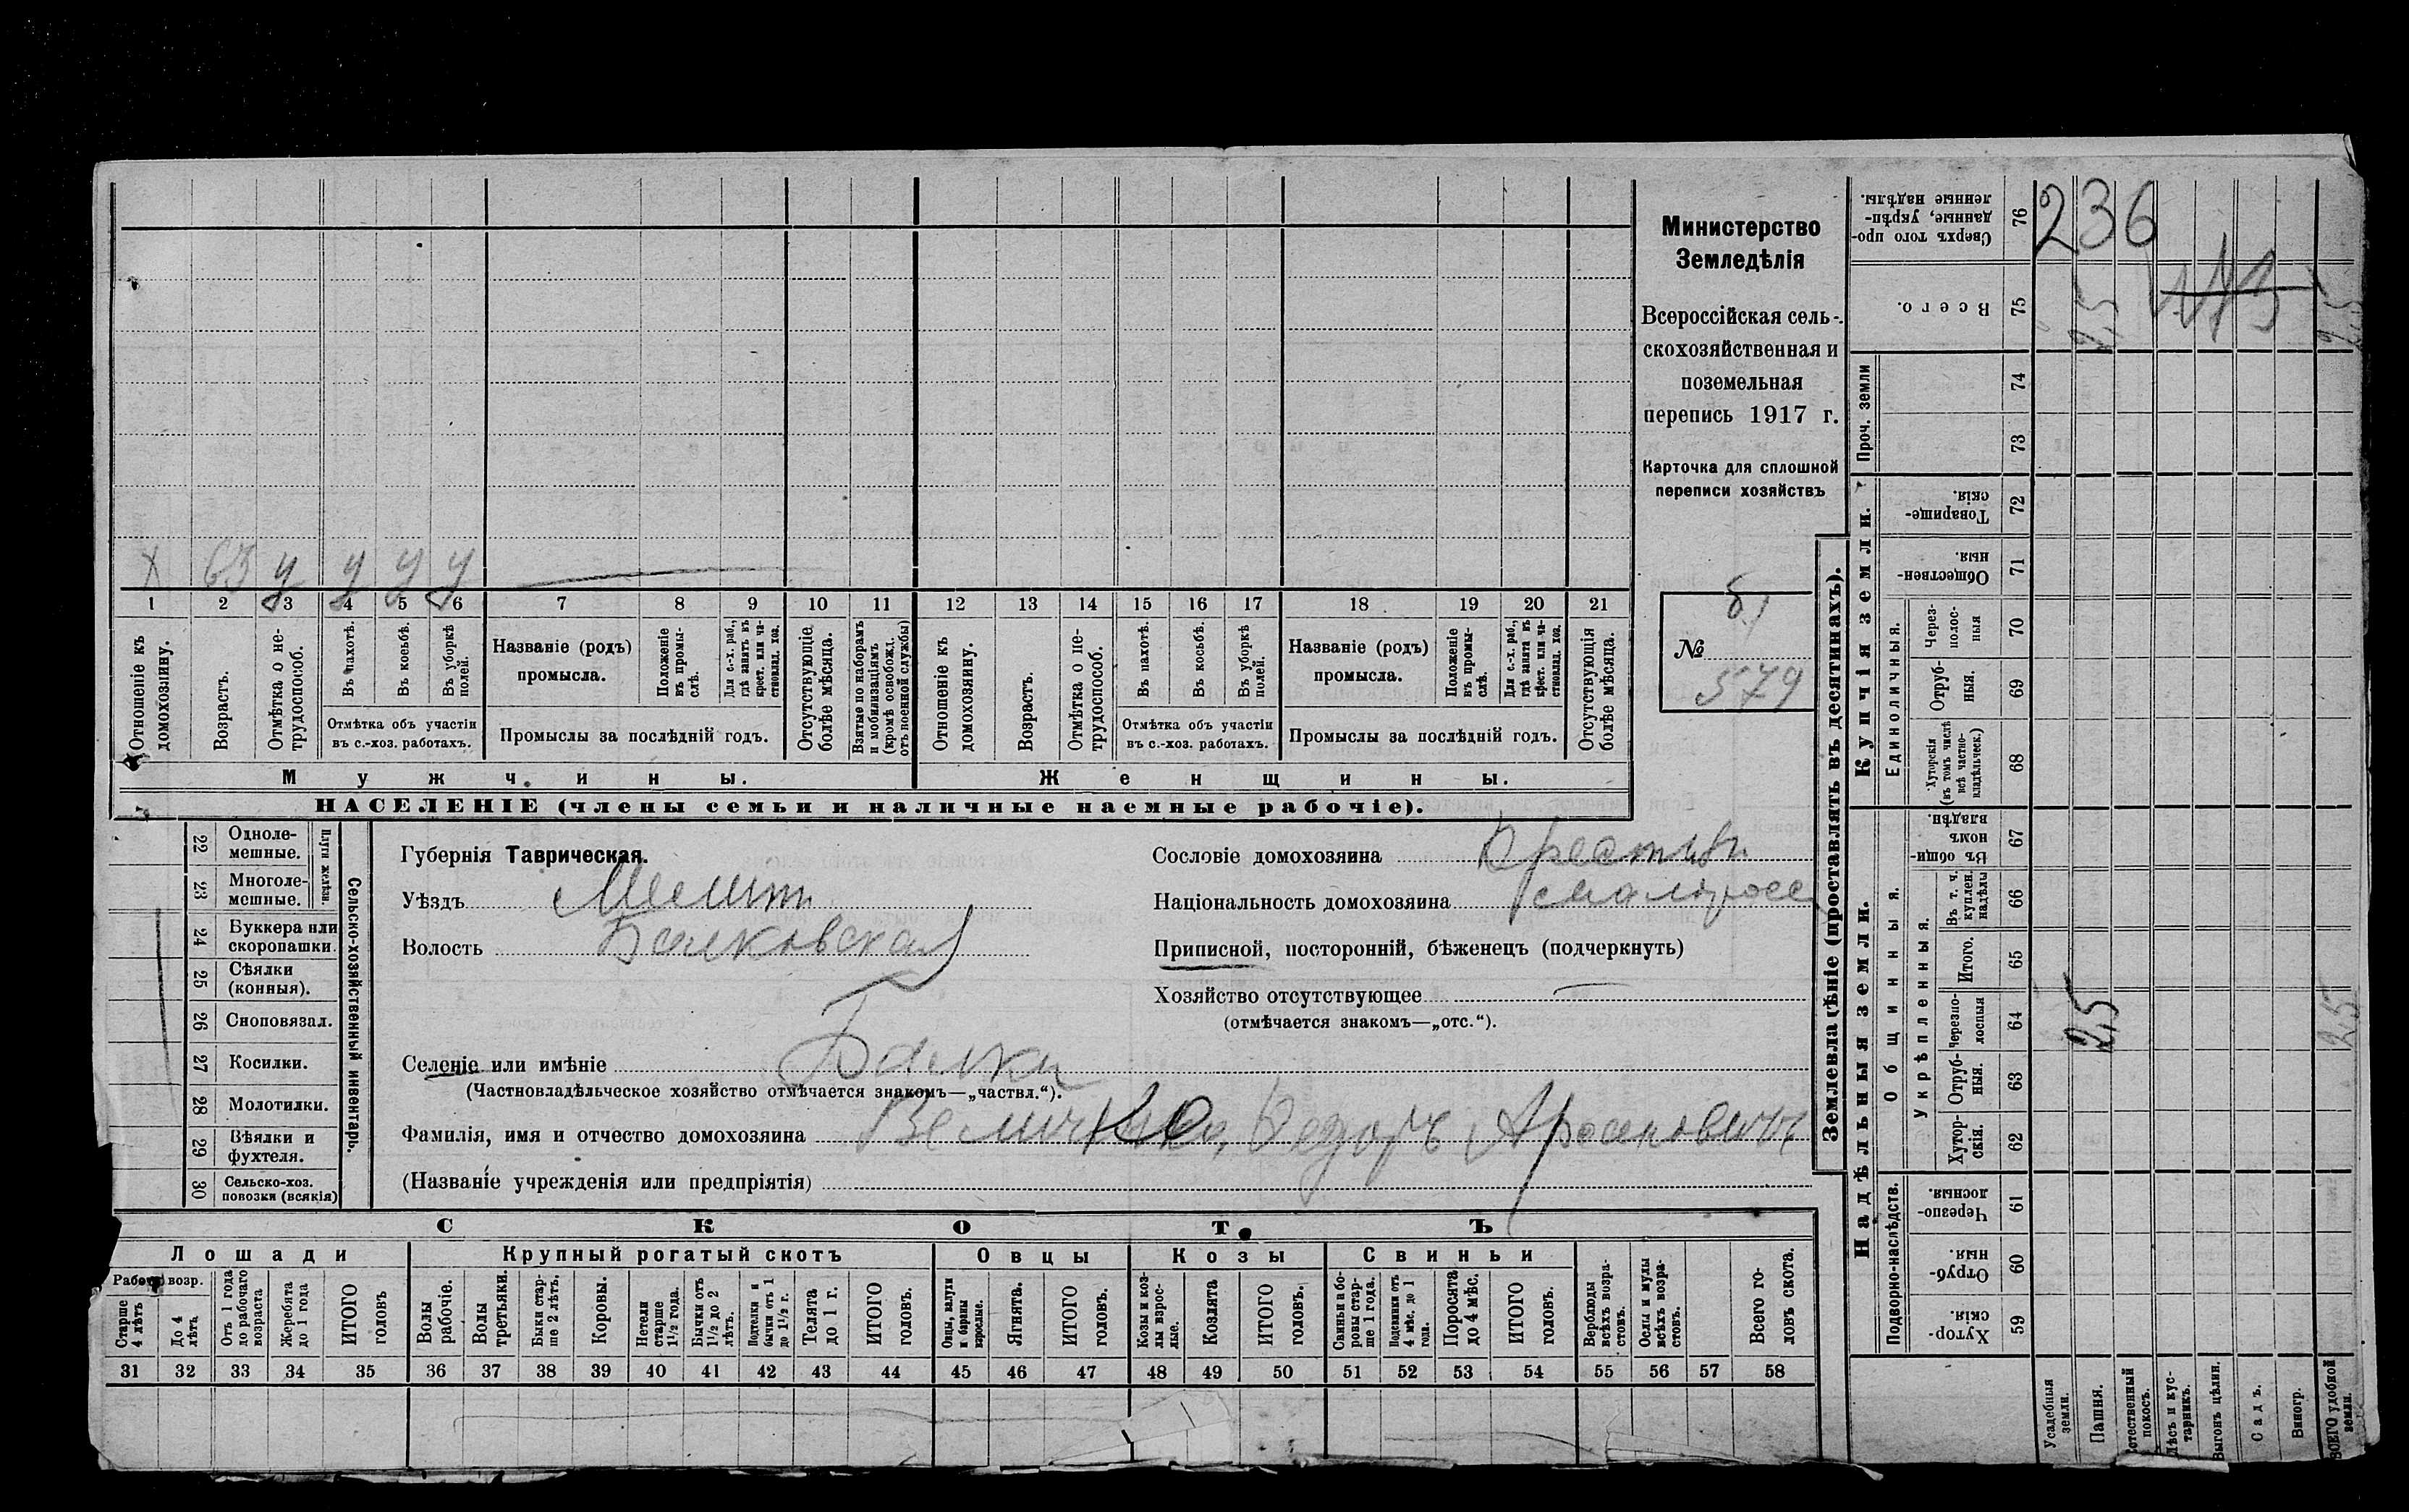 Министерство
Земледѣлія
Всероссійская сель-
скохозяйственная и
поземельная
перепись 1917 г.
Карточка для сплошной
переписи хозяйствъ
б/
№
579
х 63 у у у у
1 2 3 4 5 6 7 8 9 10 11 12 13 14 15 16 17 18 19 20 21
Отношеніе къ домохозяину.
Возрастъ.
Отмѣтка о не-трудоспособ.
Въ пахотѣ.
Въ косьбѣ.
Въ уборкѣ полей.
Отмѣтка объ участіи
въ с.-хоз. работахъ.
Названіе (родъ)
промысла.
Положеніе въ промы-слѣ.
Для с.-х. раб., гдѣ занятъ въ крест. или ча-стновлад. хоз.
Промыслы за послѣдній годъ.
Отсутствующіе болѣе мѣсяца.
Взятые по наборамъ и мобилизаціямъ (кромѣ освобожд. отъ военной службы)
Отношеніе къ домохозяину.
Возрастъ.
Отмѣтка о не-трудоспособ.
Въ пахотѣ.
Въ косьбѣ.
Въ уборкѣ полей.
Отмѣтка объ участіи
въ с.-хоз. работахъ.
Названіе (родъ)
промысла.
Положеніе въ промы-слѣ.
Для с.-х. раб., гдѣ занята въ крест. или ча-стновлад. хоз.
Промыслы за послѣдній годъ.
Отсутствующія болѣе мѣсяца.
Мужчины.
Женщины.
НАСЕЛЕНІЕ (члены семьи и наличные наемные рабочіе).
22 Одноле-мешные.
23 Многоле-мешные.
24 Буккера или скоропашки.
25 Сѣялки (конныя).
26 Сноповязал.
27 Косилки.
28 Молотилки.
29 Вѣялки и фухтеля.
30 Сельско-хоз. повозки (всякія)
Плуги желѣзн.
Сельско-хозяйственный инвентарь.
Губернія Таврическая.
Уѣздъ Мелит
Волость Балковская
Селеніе или имѣніе Балки
(Частновладѣльческое хозяйство отмѣчается знакомъ—„частвл.“).
Фамилія, имя и отчество домохозяина Величко, Федоръ
(Названіе учрежденія или предпріятія)
Сословіе домохозяина
Національность домохозяина малоросс
Приписной, посторонній, бѣженецъ (подчеркнуть)
Хозяйство отсутствующее
(отмѣчается знакомъ—„отс.“).
СКОТЪ
Лошади
Крупный рогатый скотъ
Овцы
Козы
Свиньи
Рабоч. возр.
Старше 4 лѣтъ
До 4 лѣтъ
Отъ 1 года до рабочаго возраста
Жеребята до 1 года
ИТОГО головъ
Волы рабочіе.
Волы третьяки.
Быки стар-ше 2 лѣтъ.
Коровы.
Нетели старше 1½ года.
Бычки отъ 1½ до 2 лѣтъ.
Подтелки и бычки отъ 1 до 1½ г.
Телята до 1 г.
ИТОГО головъ.
Овцы, валухи и бараны взрослые.
Ягнята.
ИТОГО головъ.
Козы и коз-лы взрос-лые.
Козлята
ИТОГО головъ.
Свиньи и бо-ровы стар-ше 1 года.
Подсвинки отъ 4 мѣс. до 1 года.
Поросята до 4 мѣс.
ИТОГО головъ.
Верблюды всѣхъ возра-стовъ.
Ослы и мулы всѣхъ возра-стовъ.
Всего го-ловъ скота.
31 32 33 34 35 36 37 38 39 40 41 42 43 44 45 46 47 48 49 50 51 52 53 54 55 56 57 58
Землевладѣніе (проставлять въ десятинахъ).
Купчія земли.
Надѣльныя земли.
Проч. земли
Единоличныя.
Общинныя.
Укрѣпленныя.
Подворно-наслѣдств.
76 Сверхъ того про-данные, укрѣп-ленные надѣлы.
236
75 Всего.
2,5
2,5
74
73
72 Товарище-скія.
71 Обществен-ныя.
70 Через-полос-ныя
69 Отруб-ныя.
68 Хуторскія (въ томъ числѣ всѣ частно-владѣльческ.)
67 Въ общин-номъ владѣн.
66 Въ т. ч. куплен. надѣлы
65 Итого.
64 Черезпо-лосныя
2,5
2,5
63 Отруб-ныя.
62 Хутор-скія.
61 Черезпо-лосныя.
60 Отруб-ныя.
59 Хутор-скія.
Усадебныя земли.
Пашня.
Естественный покосъ.
Лѣсъ и кус-тарникъ.
Выгонъ цѣлин.
Садъ.
Виногр.
ВСЕГО удобной земли.